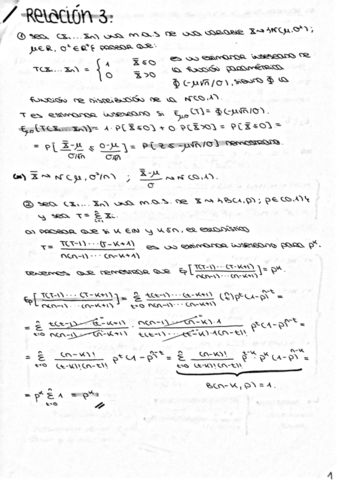 Relación 3.
① Sea (X1...Xn) una m.a.s. de una variable X→N(μ,σ²);
μ∈R, σ²∈R⁺. Probar que:
T(X1...Xn) = { 1 X̄≤0
0 X̄>0
es un estimador insesgado de
la función paramétrica
Φ(-μ√n/σ), siendo Φ la
función de distribución de la N(0,1).
T es estimador insesgado si E[T] = Φ(-μ√n/σ)
E[T(X1...Xn)] = 1·P[X̄≤0] + 0·P[X̄>0] = P[X̄≤0] =
= P[(X̄-μ)/(σ/√n) ≤ (0-μ)/(σ/√n)] = P[Z≤-μ√n/σ] demostrado.
X̄→N(μ,σ²/n) ; (X̄-μ)/σ → N(0,1).
② Sea (X1...Xn) una m.a.s. de X→{B(1,p); p∈(0,1)}
y sea T = Σ Xi.
a) Probar que si k∈N y k≤n, el estadístico
T = T(T-1)...(T-k+1) / n(n-1)...(n-k+1) es un estimador insesgado para p^k.
Tenemos que demostrar que Ep[T(T-1)...(T-k+1) / n(n-1)...(n-k+1)] = p^k.
Ep[T(T-1)...(T-k+1) / n(n-1)...(n-k+1)] = Σ t(t-1)...(t-k+1) / n(n-1)...(n-k+1) (n t) p^t (1-p)^n-t =
= Σ t(t-1)...(t-k+1) / n(n-1)...(n-k+1) · n(n-1)...(n-k)...1 / t(t-1)...(t-k)...1(n-t)! p^t (1-p)^n-t =
= Σ (n-k)! / (t-k)!(n-t)! p^t (1-p)^n-t = Σ (n-k)! / (t-k)!(n-t)!
B(n-k, p) = 1.
= p^k Σ 1 = p^k.
1